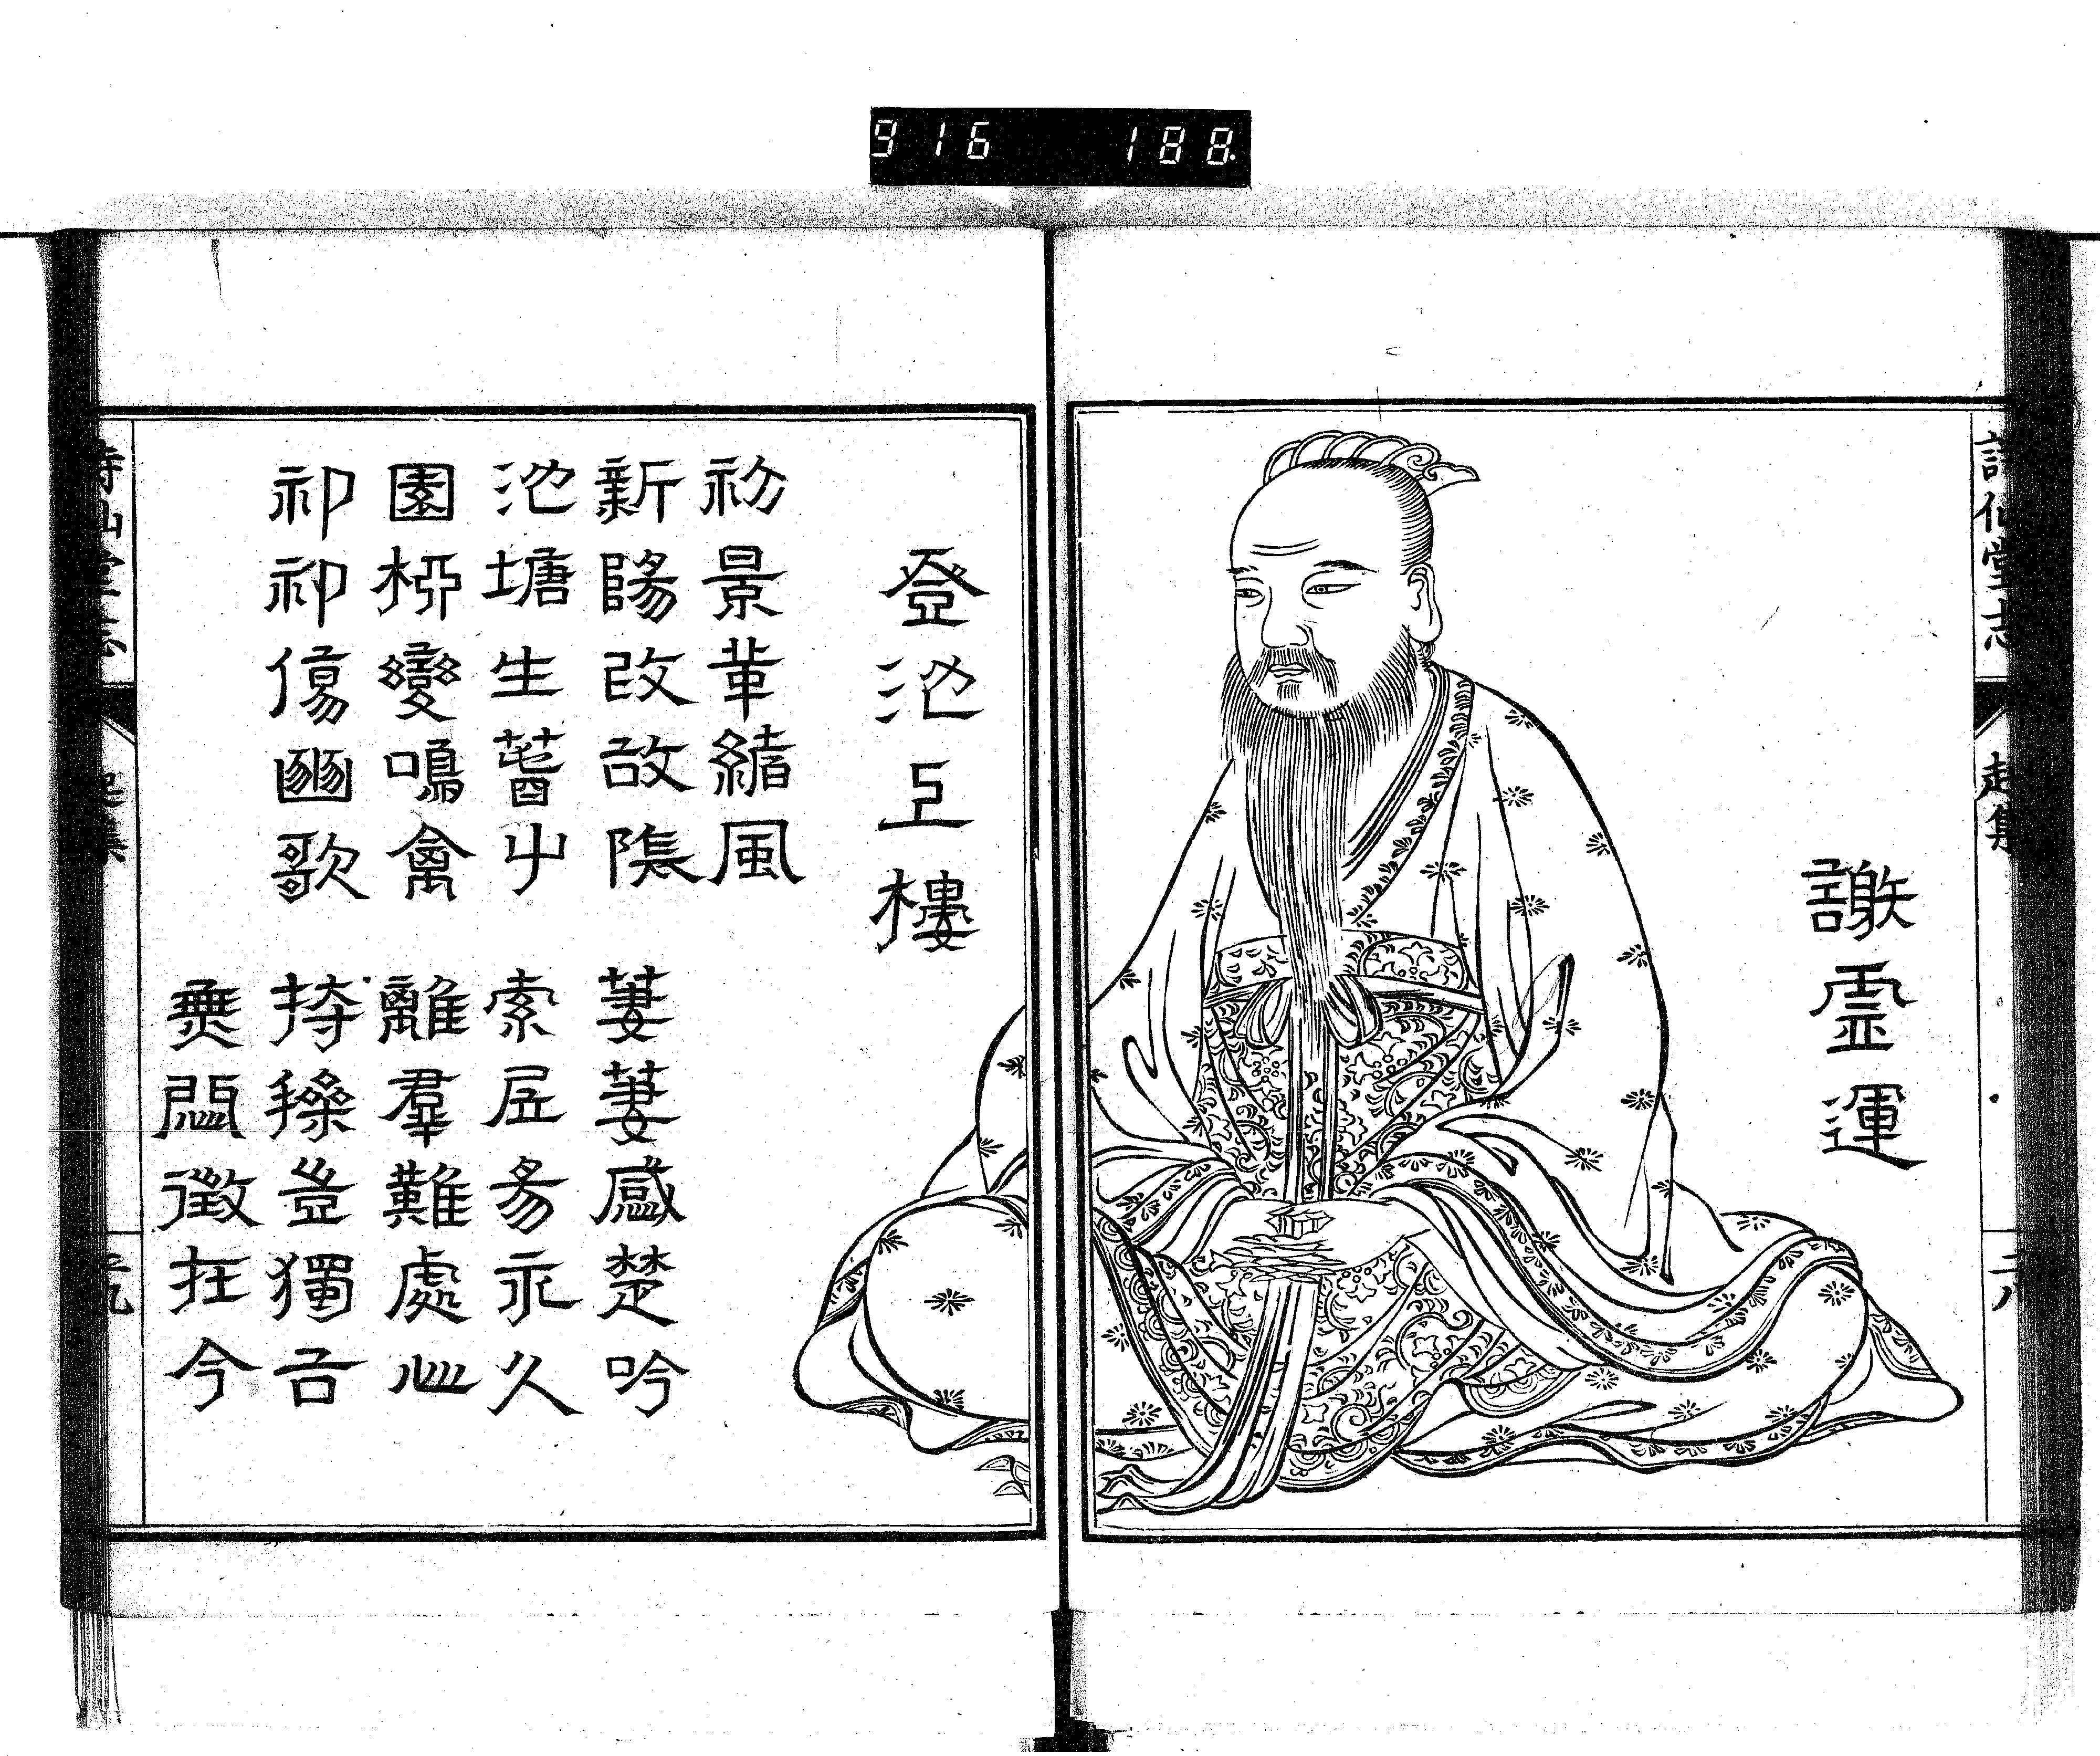 916 188.
詩仙堂志 起集
謝霊運
登池上樓
初景革緒風
新陽改故陰
池塘生春草
園柳變鳴禽
祁祁傷豳歌
萋萋感楚吟
索居易永久
離羣難處心
持操豈獨古
無悶徵在今